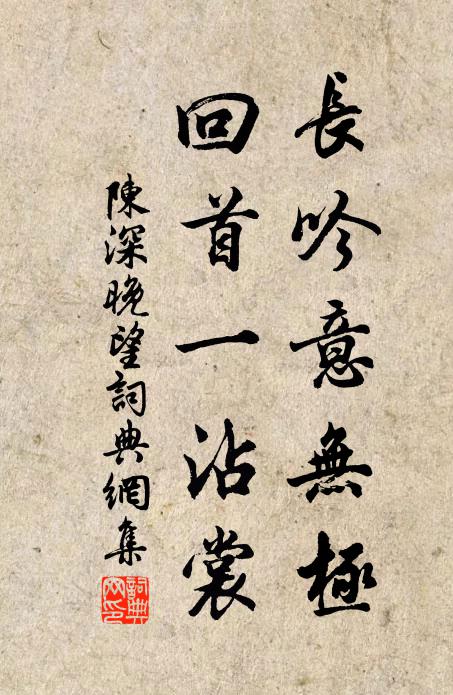 長吟意無極
回首一沾裳
陳深晚望詞典網集
詞典網印